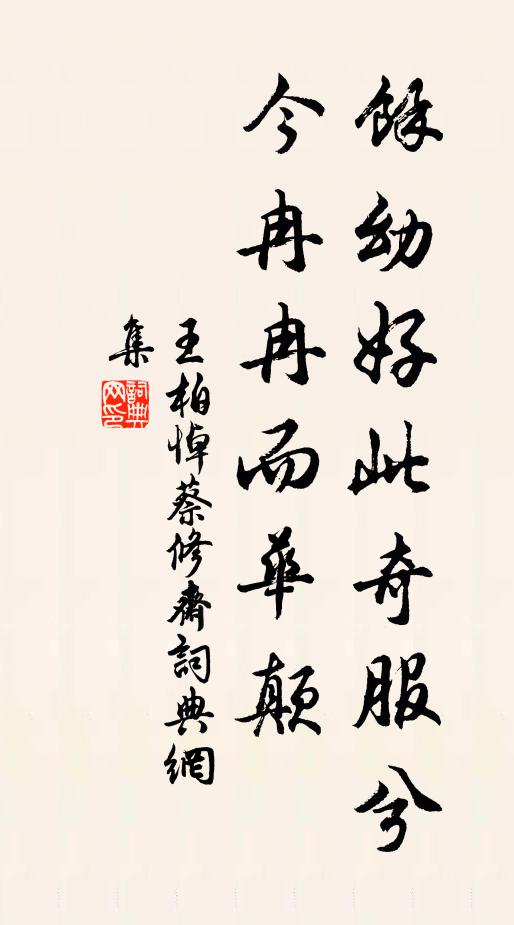 餘幼好此奇服兮
今冉冉而華顛
王柏悼蔡修齋詞典網
集
詞典網印